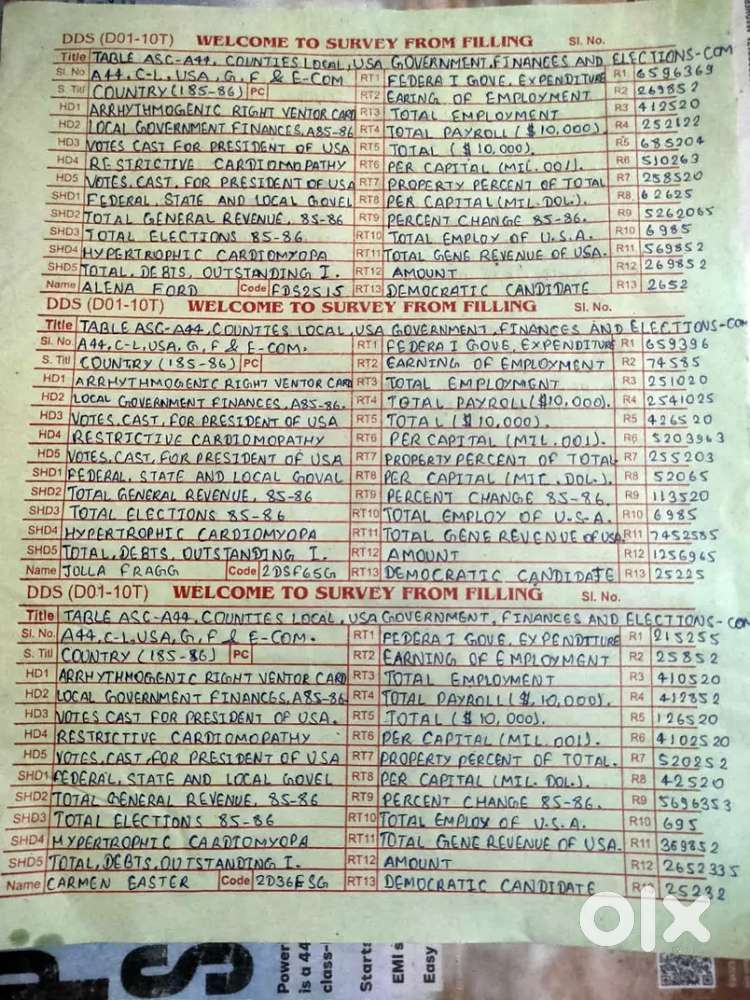 DDS (D01-10T) WELCOME TO SURVEY FROM FILLING Sl. No.
Title TABLE ASC-A44, COUNTIES LOCAL, USA GOVERNMENT, FINANCES AND ELECTIONS-COM
Sl. No A44, C-L, USA, G, F & E-COM RT1 FEDERA I GOVE, EXPENDITURE R1 6596369
S. Titl COUNTRY (185-86) PC RT2 EARING OF EMPLOYMENT R2 269852
HD1 ARRHYTHMOGENIC RIGHT VENTOR CARD RT3 TOTAL EMPLOYMENT R3 412520
HD2 LOCAL GOVERNMENT FINANCES, A85-86 RT4 TOTAL PAYROLL ($10,000) R4 252122
HD3 VOTES CAST FOR PRESIDENT OF USA RT5 TOTAL ($10,000). R5 685204
HD4 RESTRICTIVE CARDIOMOPATHY RT6 PER CAPITAL (MIL. 001). R6 510263
HD5 VOTES. CAST, FOR PRESIDENT OF USA RT7 PROPERTY PERCENT OF TOTAL R7 258520
SHD1 FEDERAL, STATE AND LOCAL GOVEL RT8 PER CAPTTAL (MIL. DOL.). R8 62625
SHD2 TOTAL GENERAL REVENUE, 85-86 RT9 PERCENT CHANGE 85-86. R9 5262065
SHD3 TOTAL ELECTIONS 85-86 RT10 TOTAL EMPLOY OF U.S.A. R10 6985
SHD4 HYPERTROPHIC CARDIOMYOPA RT11 TOTAL GENE REVENUE OF USA. R11 569852
SHD5 TOTAL, DEBTS, OUTSTANDING I. RT12 AMOUNT R12 269852
Name ALENA FORD Code FDS2515 RT13 DEMOCRATIC CANDIDATE R13 2652
DDS (D01-10T) WELCOME TO SURVEY FROM FILLING Sl. No.
Title TABLE ASC-A44, COUNTIES LOCAL, USA GOVERNMENT, FINANCES AND ELECTIONS-COM
Sl. No A44, C-L, USA, G, F & E-COM. RT1 FEDERA I GOVE, EXPENDITURE R1 659396
S. Titl COUNTRY (185-86) PC RT2 EARNING OF EMPLOYMENT R2 74585
HD1 ARRHYTHMOGENIC RIGHT VENTOR CARD RT3 TOTAL EMPLOYMENT R3 251020
HD2 LOCAL GOVERNMENT FINANCES, A85-86. RT4 TOTAL PAYROLL ($10,000). R4 2541025
HD3 VOTES CAST, FOR PRESIDENT OF USA RT5 TOTAL ($10,000). R5 426520
HD4 RESTRICTIVE CARDIOMOPATHY RT6 PER CAPITAL (MIL. 001). R6 5203963
HD5 VOTES. CAST, FOR PRESIDENT OF USA RT7 PROPERTY PERCENT OF TOTAL R7 255203
SHD1 FEDERAL, STATE AND LOCAL GOVAL RT8 PER CAPITAL (MIT. DOL.). R8 52065
SHD2 TOTAL GENERAL REVENUE, 85-86 RT9 PERCENT CHANGE 85-86. R9 113520
SHD3 TOTAL ELECTIONS 85-86 RT10 TOTAL EMPLOY OF U.S.A. R10 6985
SHD4 HYPERTROPHIC CARDIOMYOPA RT11 TOTAL GENE REVENUE OF USA R11 7452585
SHD5 TOTAL, DEBTS, OUTSTANDING I. RT12 AMOUNT R12 1256965
Name JOLLA FRAGG Code 2DSF65G RT13 DEMOCRATIC CANDIDATE R13 25225
DDS (D01-10T) WELCOME TO SURVEY FROM FILLING Sl. No.
Title TABLE ASC-A44, COUNTIES LOCAL, USA GOVERNMENT, FINANCES AND ELECTIONS-COM
Sl. No. A44, C-L, USA, G, F & E-COM. RT1 FEDERA I GOVE, EXPENDITURE R1 215255
S. Titl COUNTRY (185-86) PC RT2 EARNING OF EMPLOYMENT R2 25852
HD1 ARRHYTHMOGENIC RIGHT VENTOR CARD RT3 TOTAL EMPLOYMENT R3 410520
HD2 LOCAL GOVERNMENT FINANCES, A85-86 RT4 TOTAL PAYROLL ($, 10,000). R4 412852
HD3 VOTES CAST FOR PRESIDENT OF USA. RT5 TOTAL ($ 10,000). R5 126520
HD4 RESTRICTIVE CARDIOMOPATHY RT6 PER CAPITAL (MIL. 001). R6 4102520
HD5 VOTES. CAST, FOR PRESIDENT OF USA RT7 PROPERTY PERCENT OF TOTAL. R7 520252
SHD1 FEDERAL, STATE AND LOCAL GOVEL RT8 PER CAPITAL (MIL. DOL.). R8 42520
SHD2 TOTAL GENERAL REVENUE, 85-86 RT9 PERCENT CHANGE 85-86. R9 5696353
SHD3 TOTAL ELECTIONS 85-86 RT10 TOTAL EMPLOY OF U.S.A. R10 695
SHD4 HYPERTROPHIC CARDIOMYOPA RT11 TOTAL GENE REVENUE OF USA. R11 369852
SHD5 TOTAL, DEBTS, OUTSTANDING I. RT12 AMOUNT R12 2652335
Name CARMEN EASTER Code 2D36ESG RT13 DEMOCRATIC CANDIDATE 25232
olx
Power
is a 44
class-
Starts
EMI s
Easy